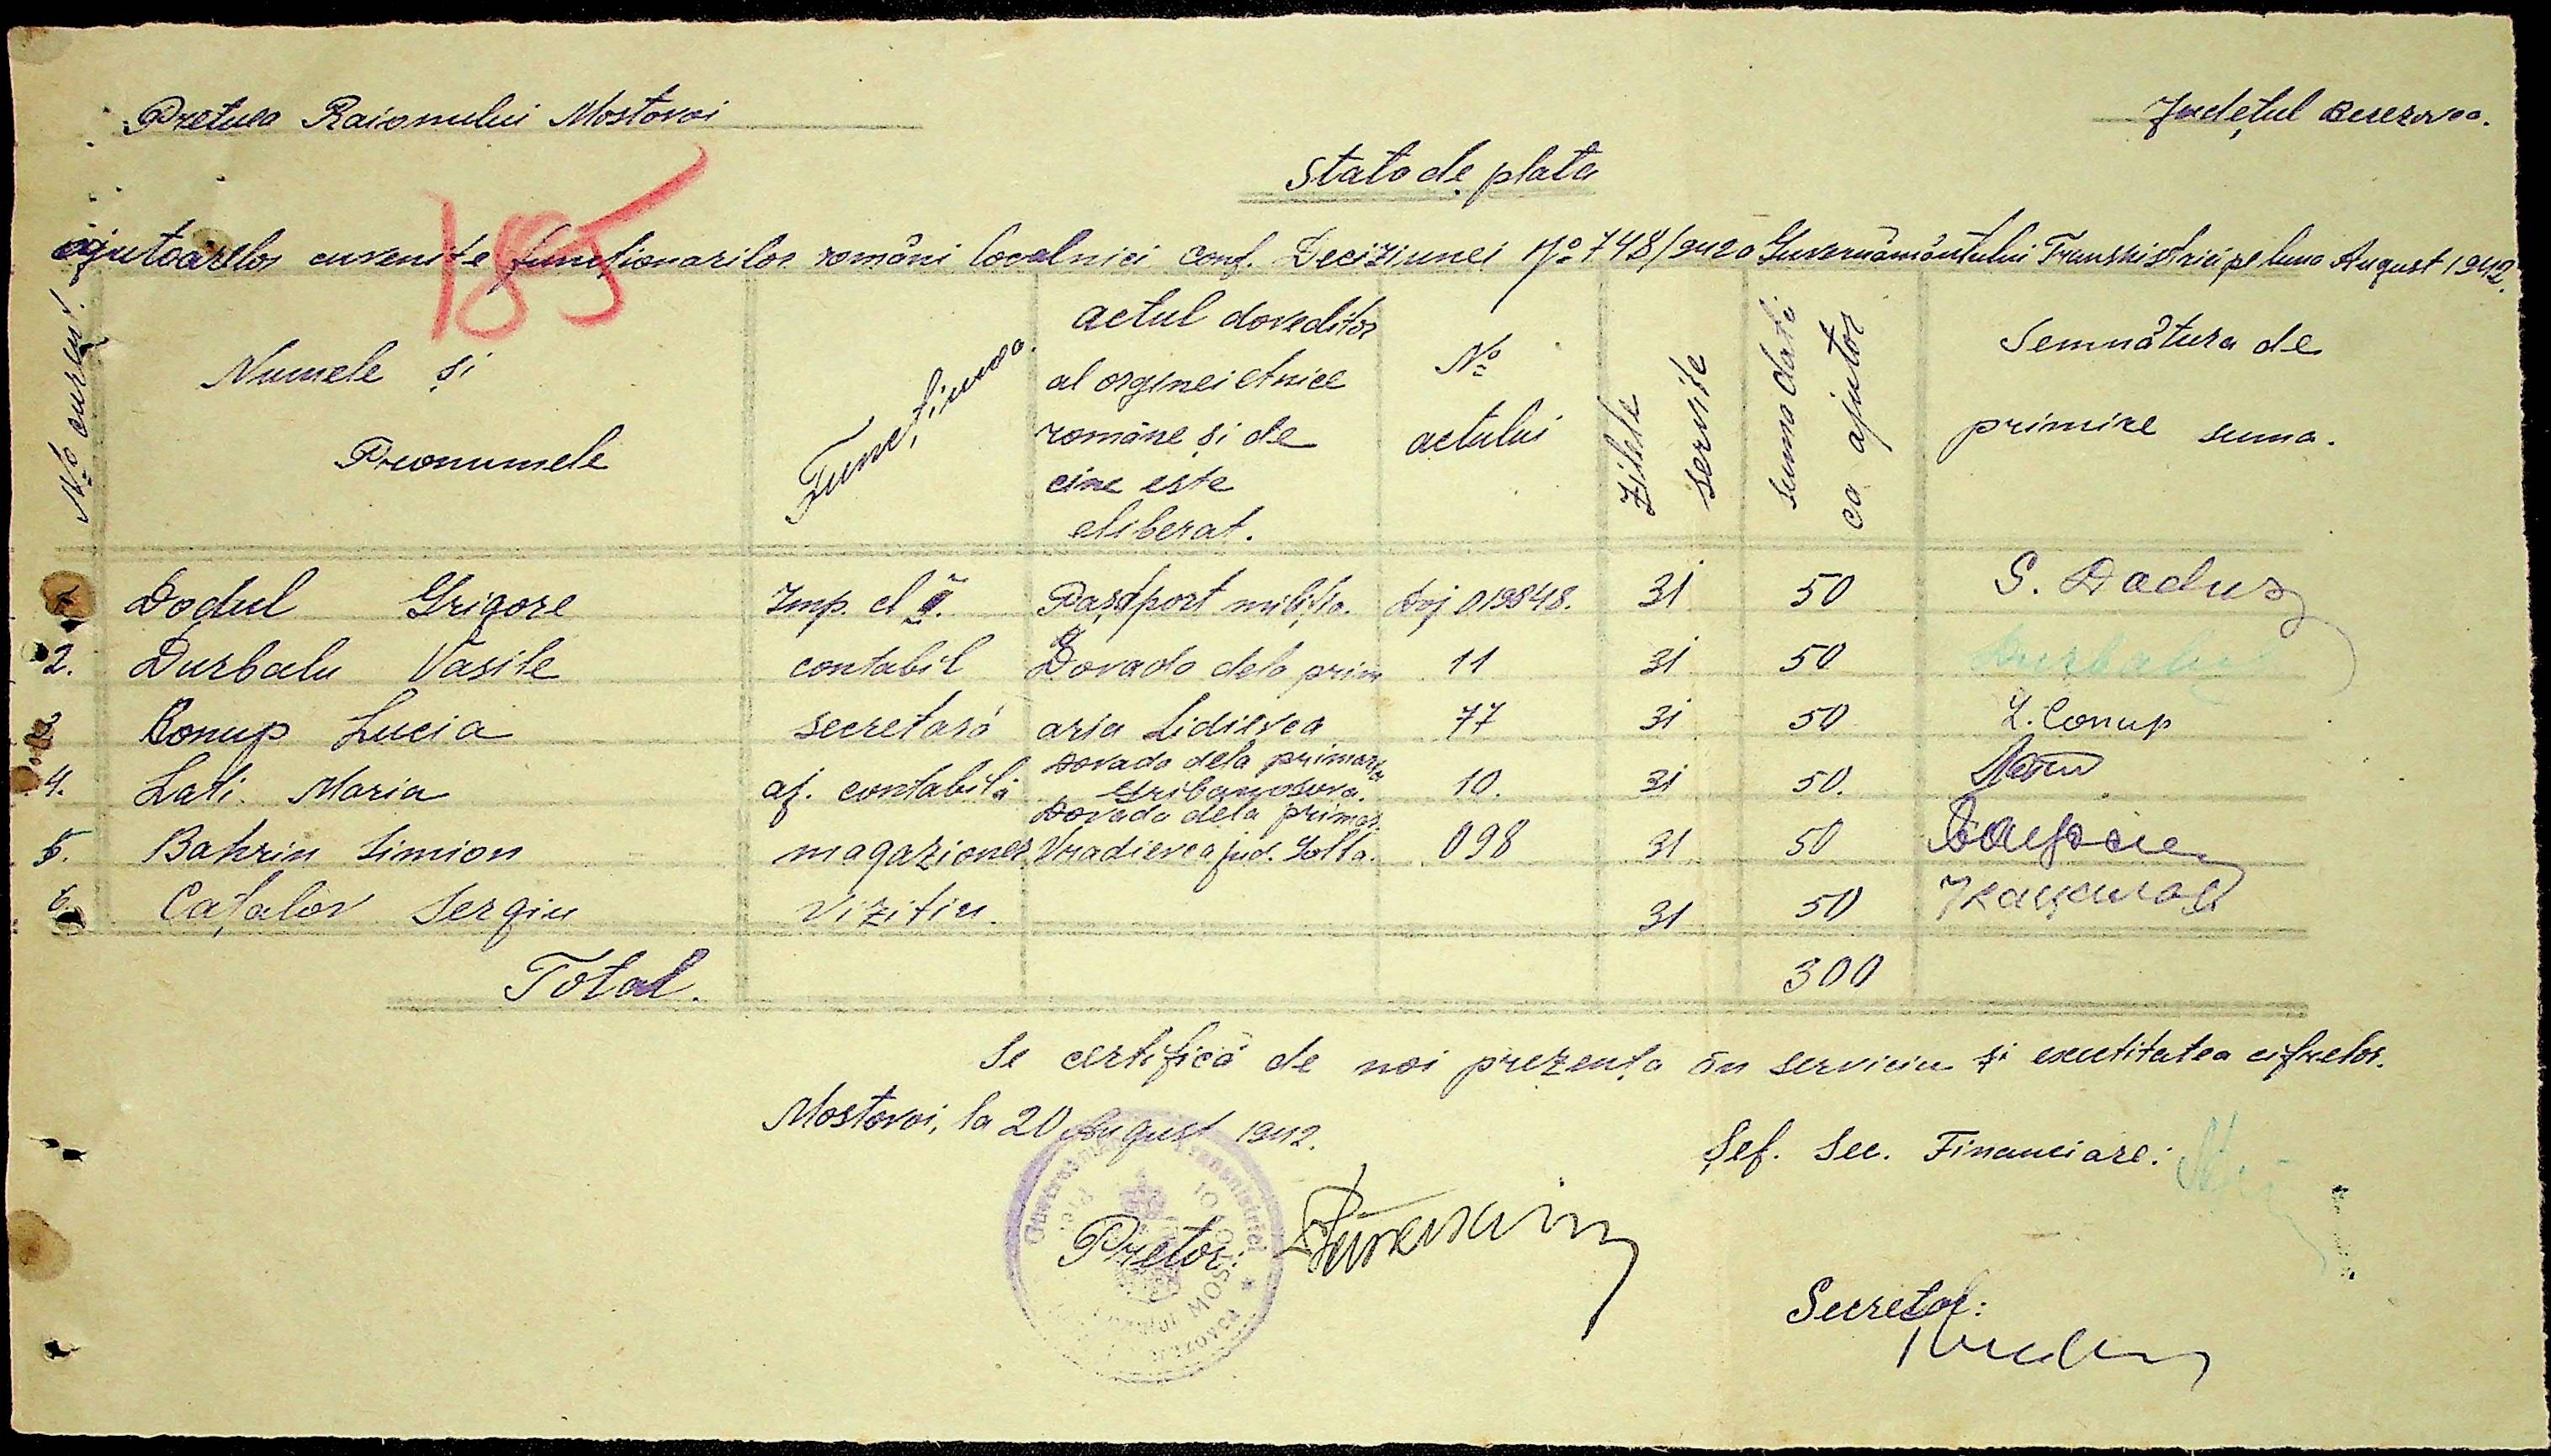 Pretura Raionului Mostovoi
Județul Berezovca.
185
Stato de plata
ajutoarelor cuvenite funcționarilor români localnici conf. Deciziunei No 748/942 a Guvernământului Transnistriei pe luna August 1942.
No curent.
Numele și
Pronumele
Funcțiunea
actul doveditor
al orginei etnice
române și de
cine este
eliberat.
No
actului
Zilele
servite
suma dată
ca ajutor
Semnătura de
primire suma.
1 Dodul Grigore Imp. cl Paspport miliția 019848. 31 50 G. Dadus
2. Durbalu Vasile contabil Dovada dela prim 11 31 50 Durbalu
3 Conup Lucia secretară aria Lidievca 77 31 50 L. Conup
4. Lati Maria aj. contabilă Dovada dela primaria 10. 31 50.
5. Bahrin Simion magazioner Dovada dela primar. Vradievca jud. Golta. 098 31 50
6. Cațalov Sergiu Vizitiu. 31 50
Total. 300
Se certifică de noi prezența în serviciu și exactitatea cifrelor.
Mostovoi, la 20 August 1942.
Șef. Sec. Financiare:
Pretor:
Secretar: